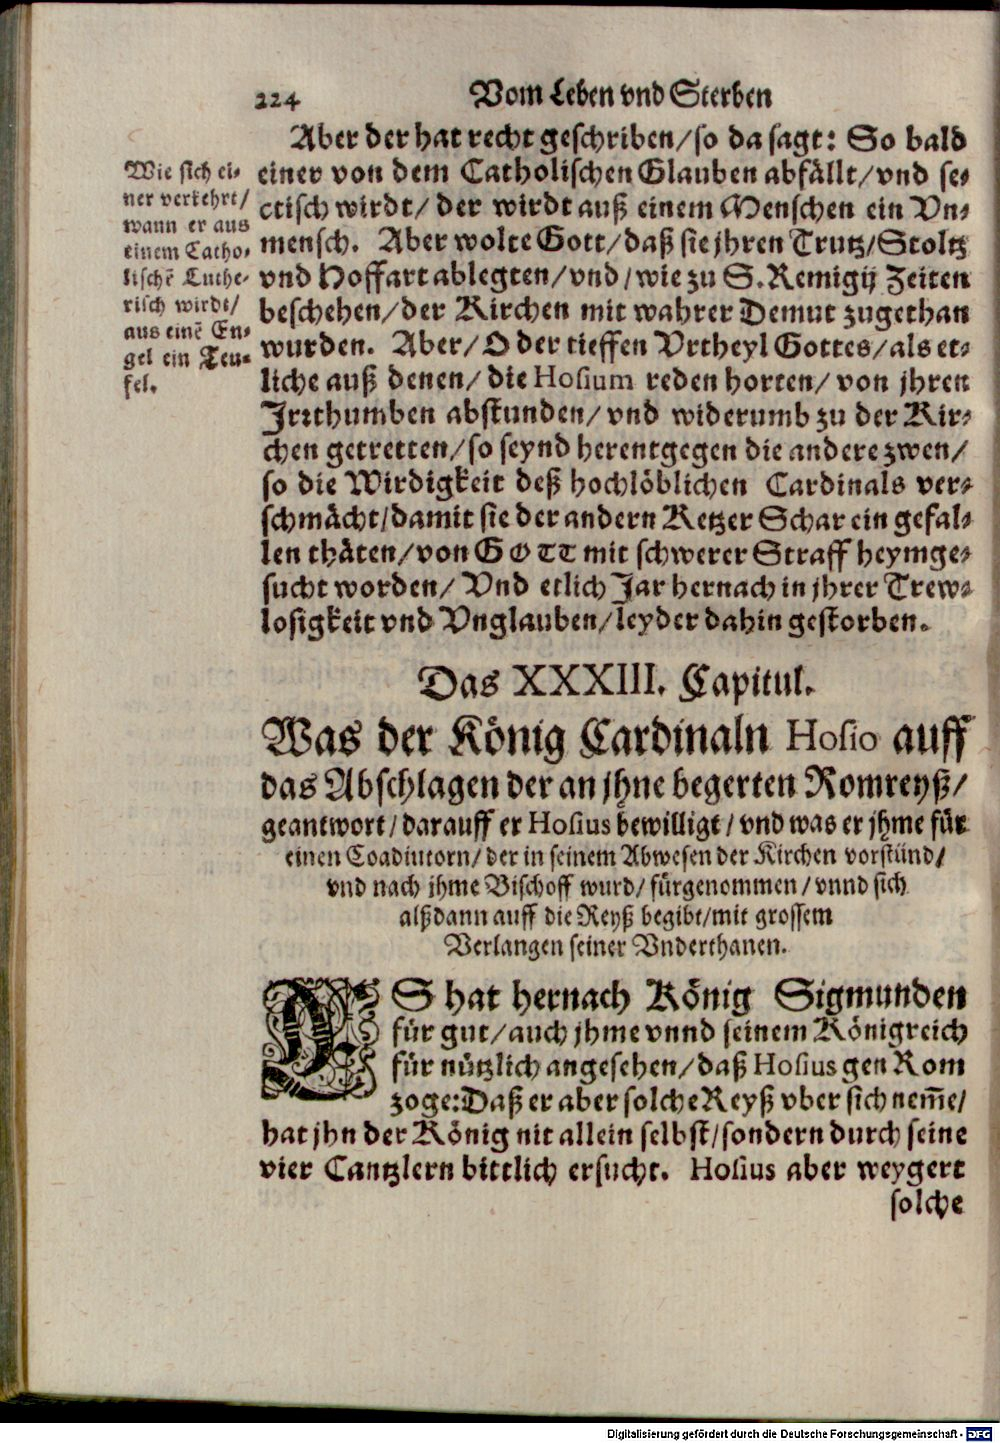 224 Vom Leben vnd Sterben
Aber der hat recht geschriben/so da sagt: So bald
einer von dem Catholischen Glauben abfällt/vnd se-
ctisch wirdt/ der wirdt auß einem Menschen ein Vn-
mensch. Aber wolte Gott/daß sie jhren Trutz/Stoltz
vnd Hoffart ablegten/vnd/wie zu S. Remigij Zeiten
beschehen/der Kirchen mit wahrer Demut zugethan
wurden. Aber/O der tieffen Vrtheyl Gottes/als et-
liche auß denen/die Hosium reden horten/von jhren
Jrrthumben abstunden/vnd widerumb zu der Kir-
chen getretten/so seynd herentgegen die andere zwen/
so die Wirdigkeit deß hochlöblichen Cardinals ver-
schmächt/damit sie der andern Ketzer Schar ein gefal-
len thäten/von GOTT mit schwerer Straff heymge-
sucht worden/ Vnd etlich Jar hernach in jhrer Trew-
losigkeit vnd Vnglauben/leyder dahin gestorben.
Wie sich ei-
ner verkehrt/
wann er aus
einem Catho-
lischē Luthe-
risch wirdt/
aus einē En-
gel ein Teu-
fel.
Das XXXIII. Capitul.
Was der König Cardinaln Hosio auff
das Abschlagen der an jhne begerten Romreyß/
geantwort/darauff er Hosius bewilligt/vnd was er jhme für
einen Coadiutorn/der in seinem Abwesen der Kirchen vorstünd/
vnd nach jhme Bischoff wurd/fürgenommen/vnnd sich
alßdann auff die Reyß begibt/mit grossem
Verlangen seiner Vnderthanen.
ES hat hernach König Sigmunden
für gut/auch jhme vnnd seinem Königreich
für nützlich angesehen/daß Hosius gen Rom
zoge:Daß er aber solche Reyß vber sich nem̄e/
hat jhn der König nit allein selbst/sondern durch seine
vier Cantzlern bittlich ersucht. Hosius aber weygert
solche
Digitalisierung gefördert durch die Deutsche Forschungsgemeinschaft - DFG